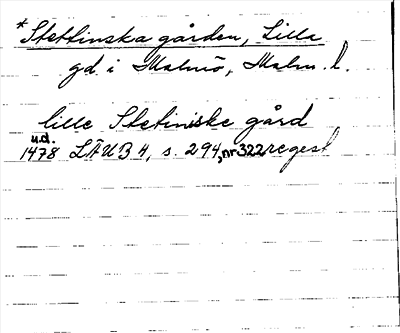 *Stettinska gården, Lilla
gd. i Malmö, Malm. l.
lille Stetiniske gård
u.d.
1478 LÄUB 4, s. 294, nr 322 regest